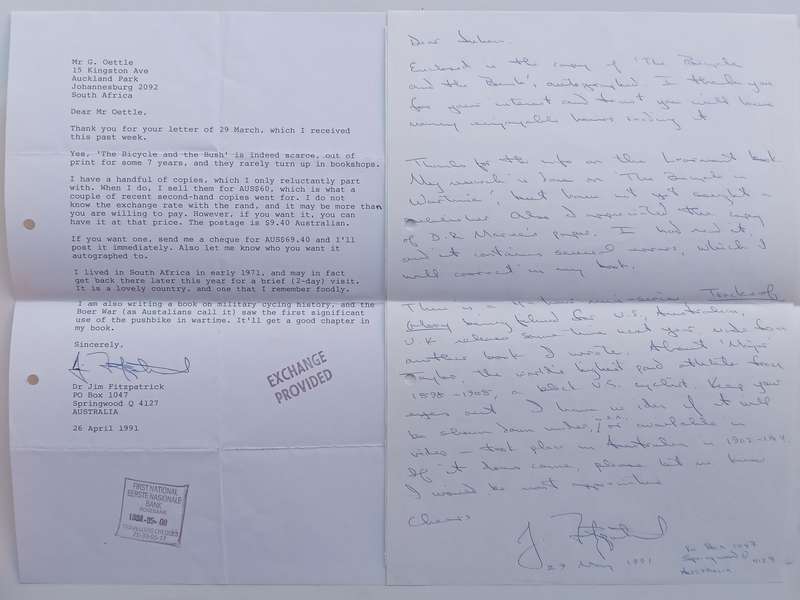 Mr G. Oettle
15 Kingston Ave
Auckland Park
Johannesburg 2092
South Africa
Dear Mr Oettle,
Thank you for your letter of 29 March, which I received
this past week.
Yes, 'The Bicycle and the Bush' is indeed scarce, out of
print for some 7 years, and they rarely turn up in bookshops.
I have a handful of copies, which I only reluctantly part
with. When I do, I sell them for AUS$60, which is what a
couple of recent second-hand copies went for. I do not
know the exchange rate with the rand, and it may be more than
you are willing to pay. However, if you want it, you can
have it at that price. The postage is $9.40 Australian.
If you want one, send me a cheque for AUS$69.40 and I'll
post it immediately. Also let me know who you want it
autographed to.
I lived in South Africa in early 1971, and may in fact
get back there later this year for a brief (2-day) visit.
It is a lovely country, and one that I remember fondly.
I am also writing a book on military cycling history, and the
Boer War (as Austalians call it) saw the first significant
use of the pushbike in wartime. It'll get a good chapter in
my book.
Sincerely,
Dr Jim Fitzpatrick
PO Box 1047
Springwood Q 4127
AUSTRALIA
26 April 1991
EXCHANGE
PROVIDED
FIRST NATIONAL
EERSTE NASIONALE
BANK
ROSEBANK
TRAVELLERS CHEQUES
Dear
Enclosed is the copy of 'The Bicycle
and the Bush', autographed. I thank you
for your interest and trust you will have
many enjoyable hours reading it
Thanks for the info on the book.
My research is done on 'The Bicycle in
Wartime', but have not yet sought
publisher. Also I appreciated the copy
of D.R. Maree's paper. I had read it,
and it contains several errors, which I
will correct in my book.
There is a mini-series, Tracks of
Glory being filmed for U.S., Australian,
U.K release some-time next year, made from
another book I wrote. About 'Major'
Taylor, the world's highest paid athlete from
1898-1908, a black U.S. cyclist. Keep your
eyes out. I have no idea if it will
be shown down under, or available in
video - took place in Australia in 1902-1904.
If it does come, please let me know
I would be most appreciative
Cheers
J. Fitzpatrick
27 May 1991
PO Box 1047
Springwood Q 4127
AUSTRALIA